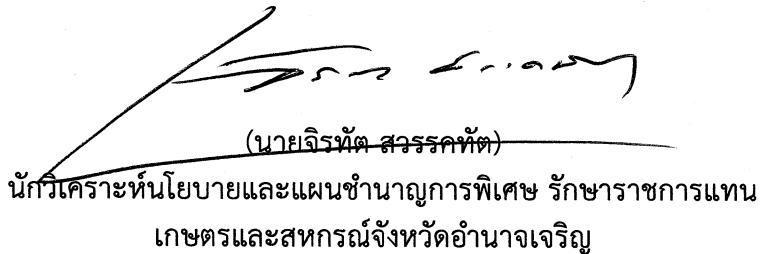 (นายจิรทัต สวรรคทัต)
นักวิเคราะห์นโยบายและแผนชำนาญการพิเศษ รักษาราชการแทน
เกษตรและสหกรณ์จังหวัดอำนาจเจริญ